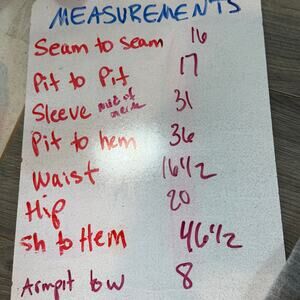 MEASUREMENTS
Seam to seam 16
Pit to Pit 17
Sleeve 31
Pit to hem 36
Waist 16 1/2
Hip 20
Sh to Hem 46 1/2
Armpit to W 8